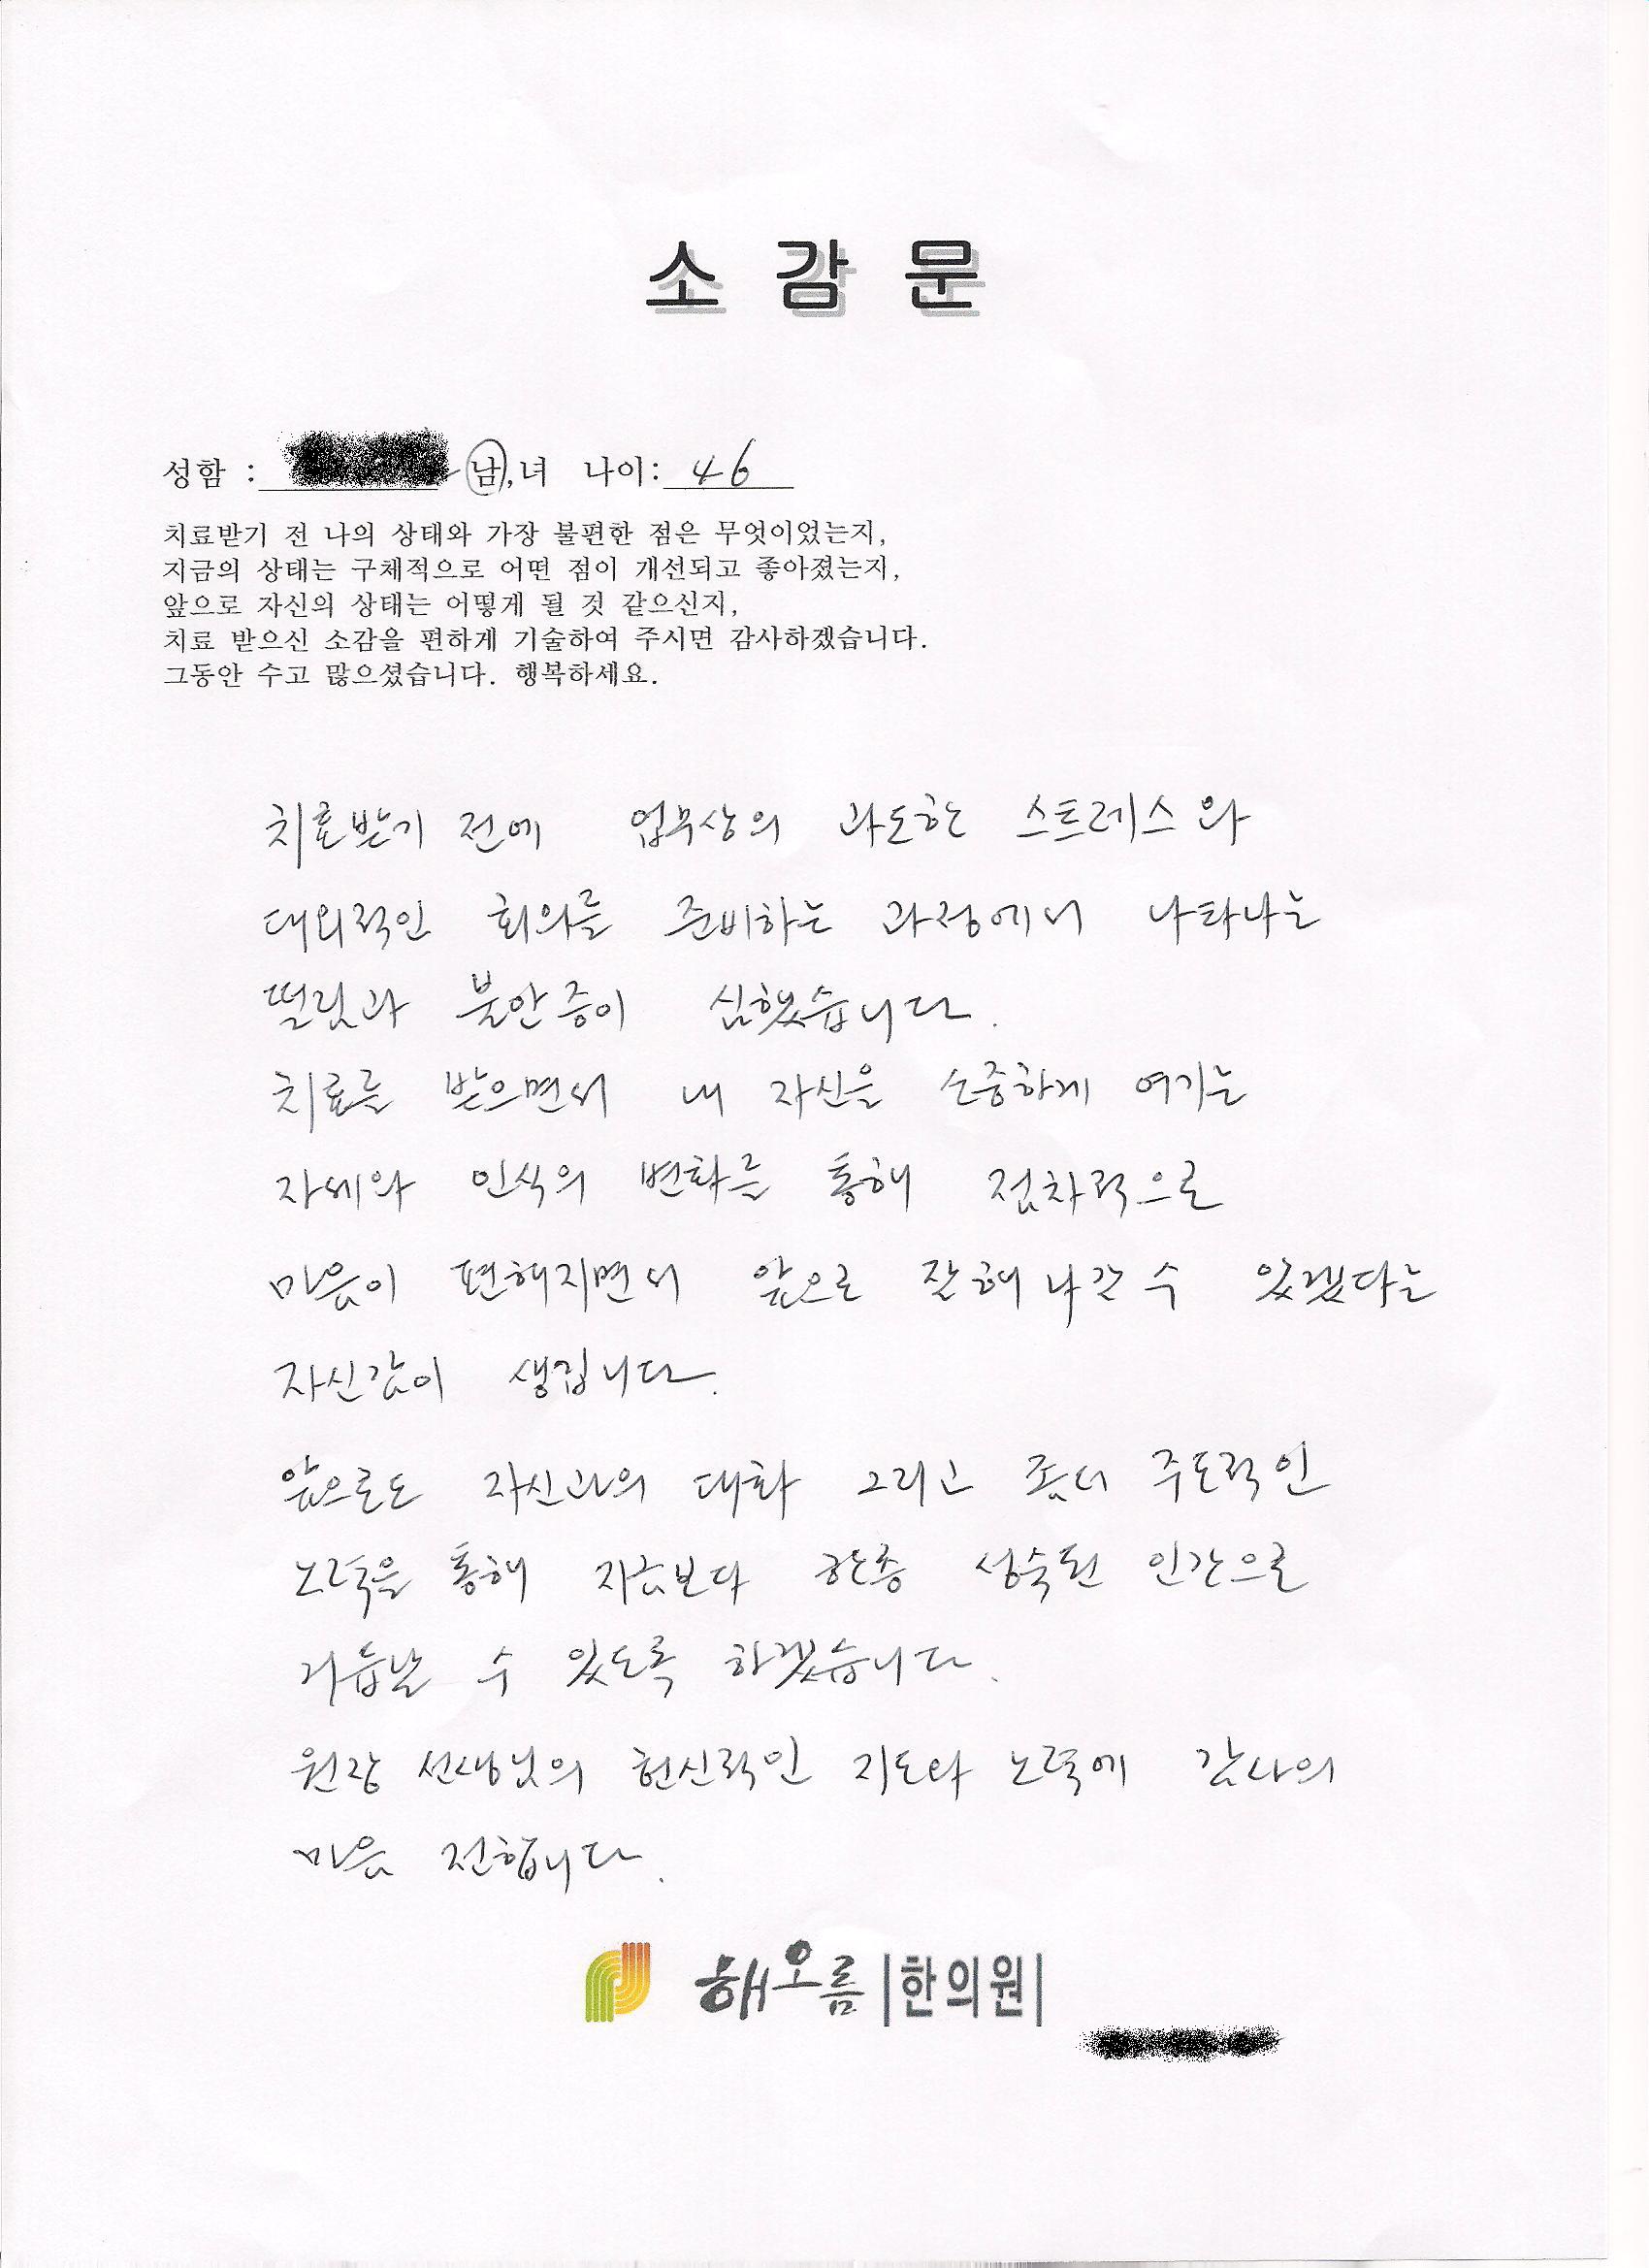 소 감 문
성함 : 남,녀 나이: 46
치료받기 전 나의 상태와 가장 불편한 점은 무엇이었는지,
지금의 상태는 구체적으로 어떤 점이 개선되고 좋아졌는지,
앞으로 자신의 상태는 어떻게 될 것 같으신지,
치료 받으신 소감을 편하게 기술하여 주시면 감사하겠습니다.
그동안 수고 많으셨습니다. 행복하세요.
치료받기 전에 업무상의 과도한 스트레스와
대외적인 회의를 준비하는 과정에서 나타나는
떨림과 불안증이 심했습니다.
치료를 받으면서 내 자신을 소중하게 여기는
자세와 인식의 변화를 통해 점차적으로
마음이 편해지면서 앞으로 잘해 나갈 수 있겠다는
자신감이 생깁니다.
앞으로도 자신과의 대화 그리고 좀더 주도적인
노력을 통해 지금보다 한층 성숙된 인간으로
거듭날 수 있도록 하겠습니다.
원장 선생님의 헌신적인 지도와 노력에 감사의
마음 전합니다.
해오름|한의원|